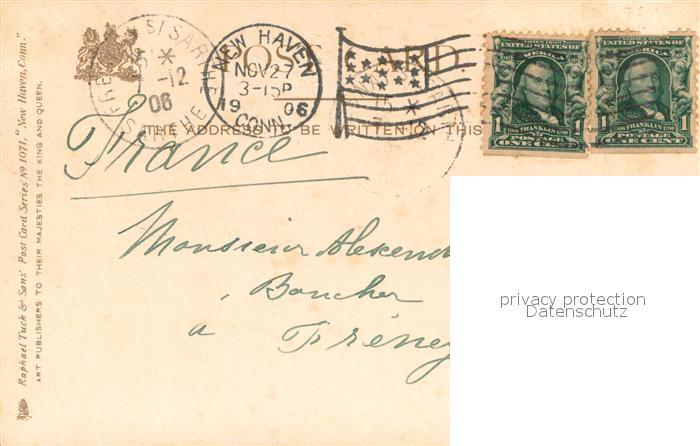 POST CARD
THE ADDRESS TO BE WRITTEN ON THIS
NEW HAVEN
NOV 27
3-15P
1906
CONN.
12
06
UNITED STATES OF AMERICA
FRANKLIN
1 1
ONE CENT
UNITED STATES OF AMERICA
FRANKLIN
1 1
POSTAGE
ONE CENT
France
Monsieur Alexend
Boucher
a Fréney
privacy protection
Datenschutz
Raphael Tuck & Sons' Post Card Series Nº 1071, "New Haven, Conn."
ART PUBLISHERS TO THEIR MAJESTIES THE KING AND QUEEN.